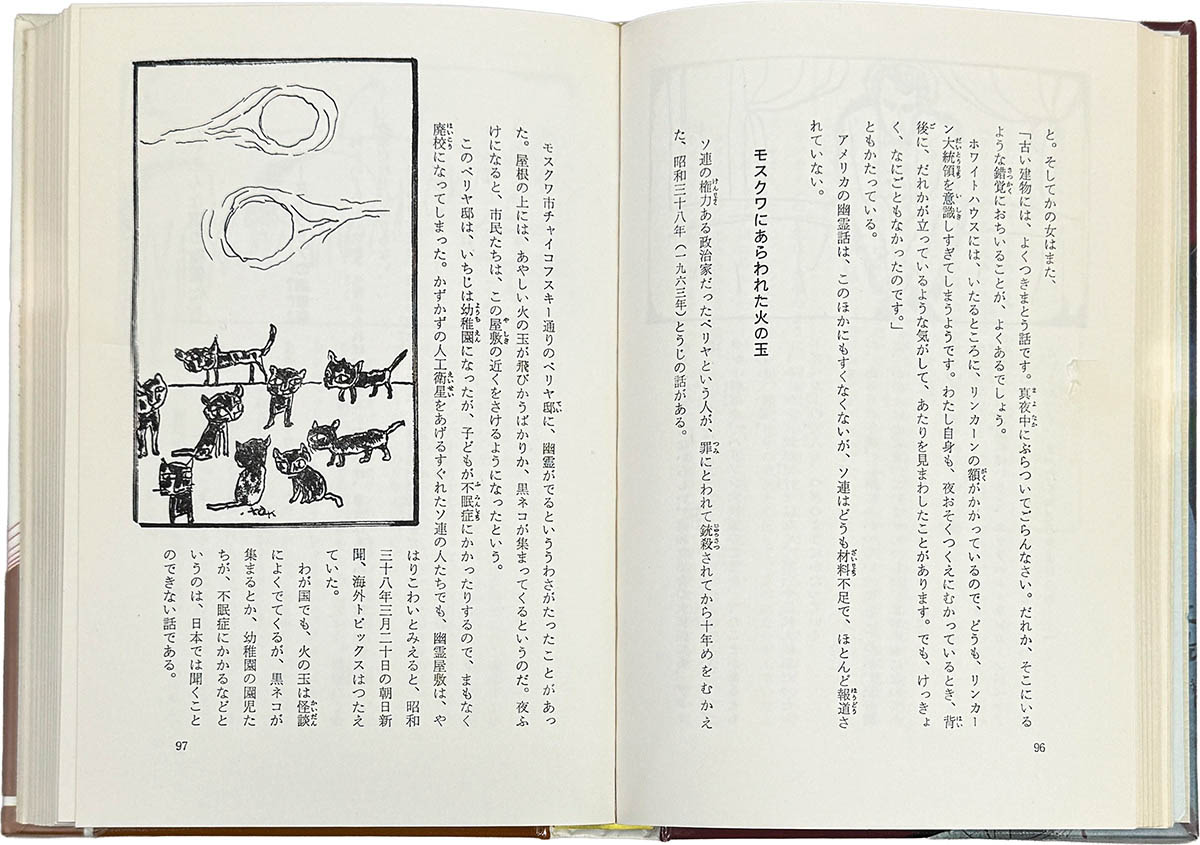 と。そしてかの女はまた、
「古い建物には、よくつきまとう話です。真夜中にぶらついてごらんなさい。だれか、そこにいる
ような錯覚におちいることが、よくあるでしょう。
ホワイトハウスには、いたるところに、リンカーンの額がかかっているので、どうも、リンカー
ン大統領を意識しすぎてしまうようです。わたし自身も、夜おそくつくえにむかっているとき、背
後に、だれかが立っているような気がして、あたりを見まわしたことがあります。でも、けっきょ
く、なにごともなかったのです。」
ともかたっている。
アメリカの幽霊話は、このほかにもすくなくないが、ソ連はどうも材料不足で、ほとんど報道さ
れていない。
モスクワにあらわれた火の玉
ソ連の権力ある政治家だったベリヤという人が、罪にとわれて銃殺されてから十年めをむかえ
た、昭和三十八年(一九六三年)とうじの話がある。
96
モスクワ市チャイコフスキー通りのベリヤ邸に、幽霊がでるといううわさがたったことがあっ
た。屋根の上には、あやしい火の玉が飛びかうばかりか、黒ネコが集まってくるというのだ。夜ふ
けになると、市民たちは、この屋敷の近くをさけるようになったという。
このベリヤ邸は、いちじは幼稚園になったが、子どもが不眠症にかかったりするので、まもなく
廃校になってしまった。かずかずの人工衛星をあげるすぐれたソ連の人たちでも、幽霊屋敷は、や
はりこわいとみえると、昭和
三十八年三月二十日の朝日新
聞、海外トピックスはつたえ
ていた。
わが国でも、火の玉は怪談
によくでてくるが、黒ネコが
集まるとか、幼稚園の園児た
ちが、不眠症にかかるなどと
いうのは、日本では聞くこと
のできない話である。
97